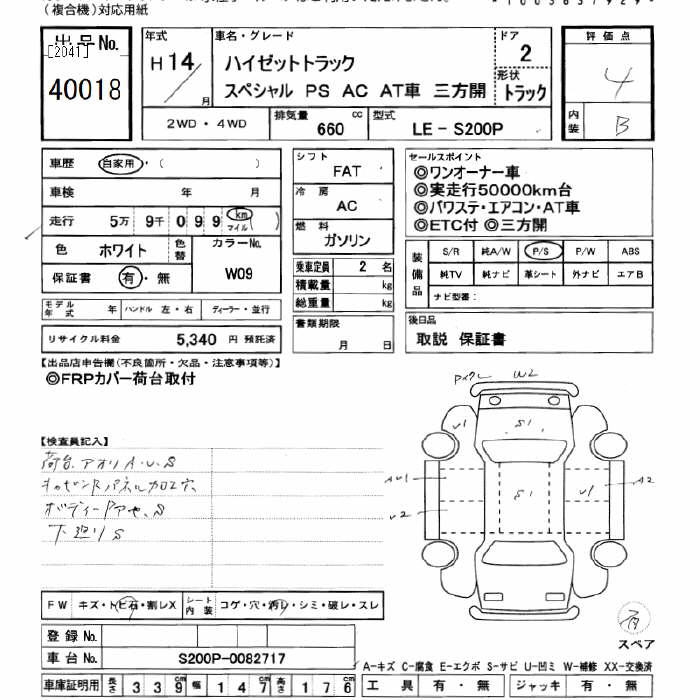 (複合機)対応用紙
出品No. [2041] 40018
年式 H14 月
車名・グレード ハイゼットトラック
スペシャル PS AC AT車 三方開
ドア 2
形状 トラック
評価点 4
内装 B
2WD・4WD
排気量 660 cc
型式 LE-S200P
車歴 自家用・( )
車検 年 月
走行 5万 9千 0 9 9 km マイル
色 ホワイト 色替
カラーNo. W09
保証書 有・無
モデル年式 年 ハンドル 左・右 ディーラー・並行
リサイクル料金 5,340 円 預託済
シフト FAT
冷房 AC
燃料 ガソリン
乗車定員 2 名
積載量 kg
総重量 kg
書類期限 月 日
セールスポイント
◎ワンオーナー車
◎実走行50000km台
◎パワステ・エアコン・AT車
◎ETC付 ◎三方開
装備品 S/R 純A/W P/S P/W ABS
純TV 純ナビ 革シート 外ナビ エアB
ナビ型番:
後日品
取説 保証書
【出品店申告欄(不良箇所・欠品・注意事項等)】
◎FRPカバー荷台取付
【検査員記入】
荷台アオリ A.U.S
下廻りS
W2
U1 S1 U1
AU1 S1 U1 A2
U2
FW キズ・トビ石・割レX
シート内装 コゲ・穴・汚レ・シミ・破レ・スレ
登録No.
車台No. S200P-0082717
有
スペア
A-キズ C-腐食 E-エクボ S-サビ U-凹ミ W-補修 XX-交換済
車庫証明用 長さ 3 3 9 cm 幅 1 4 7 cm 高さ 1 7 6 cm
工具 有・無 ジャッキ 有・無